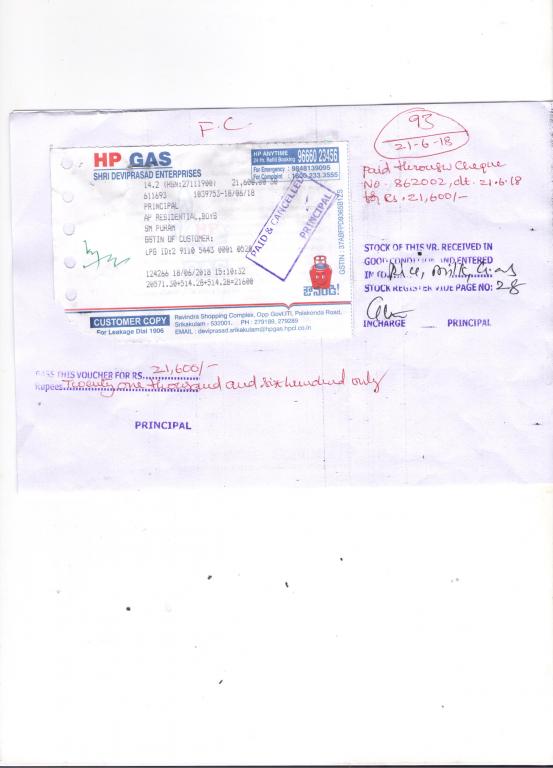 F.C
93
21-6-18
Paid through Cheque
No. 862002, dt. 21.6.18
for Rs. 21,600/-
HP GAS
SHRI DEVIPRASAD ENTERPRISES
HP ANYTIME
24 Hrs. Refill Booking 96660 23456
For Emergency : 9848139095
For Complaint 233.3555
14.2 (HSN:27111900) 21,600.00
611693 1039753-18/06/18
PRINCIPAL
AP RESIDENTIAL,BOYS
SM PURAM
GSTIN OF CUSTOMER:
LPG ID:2 9110 5443 0001 0520
124266 18/06/2018 15:10:32
20571.30+514.28+514.28=21600
PAID & CANCELLED
PRINCIPAL
CUSTOMER COPY
For Leakage Dial 1906
Ravindra Shopping Complex, Opp Govt.ITI, Palakonda Road,
Srikakulam - 532001. PH : 279189, 279289
EMAIL : deviprasad.srikakulam@hpgas.hpcl.co.in
STOCK OF THIS VR. RECEIVED IN
GOOD CONDITION AND ENTERED
IN Rice, Milk, Gas
STOCK REGISTER VIDE PAGE NO: 28
INCHARGE PRINCIPAL
PASS THIS VOUCHER FOR RS. 21,600/-
Rupees Twenty one thousand and six hundred only
PRINCIPAL